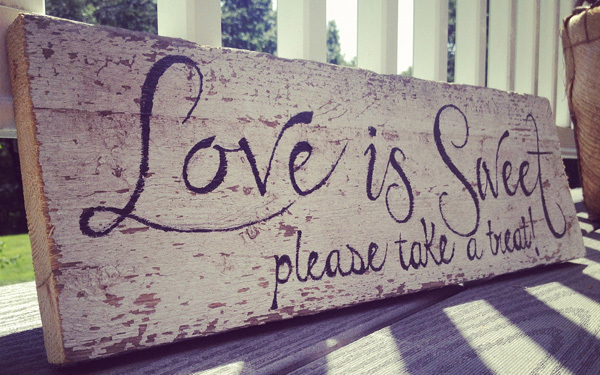 Love is Sweet
please take a treat!